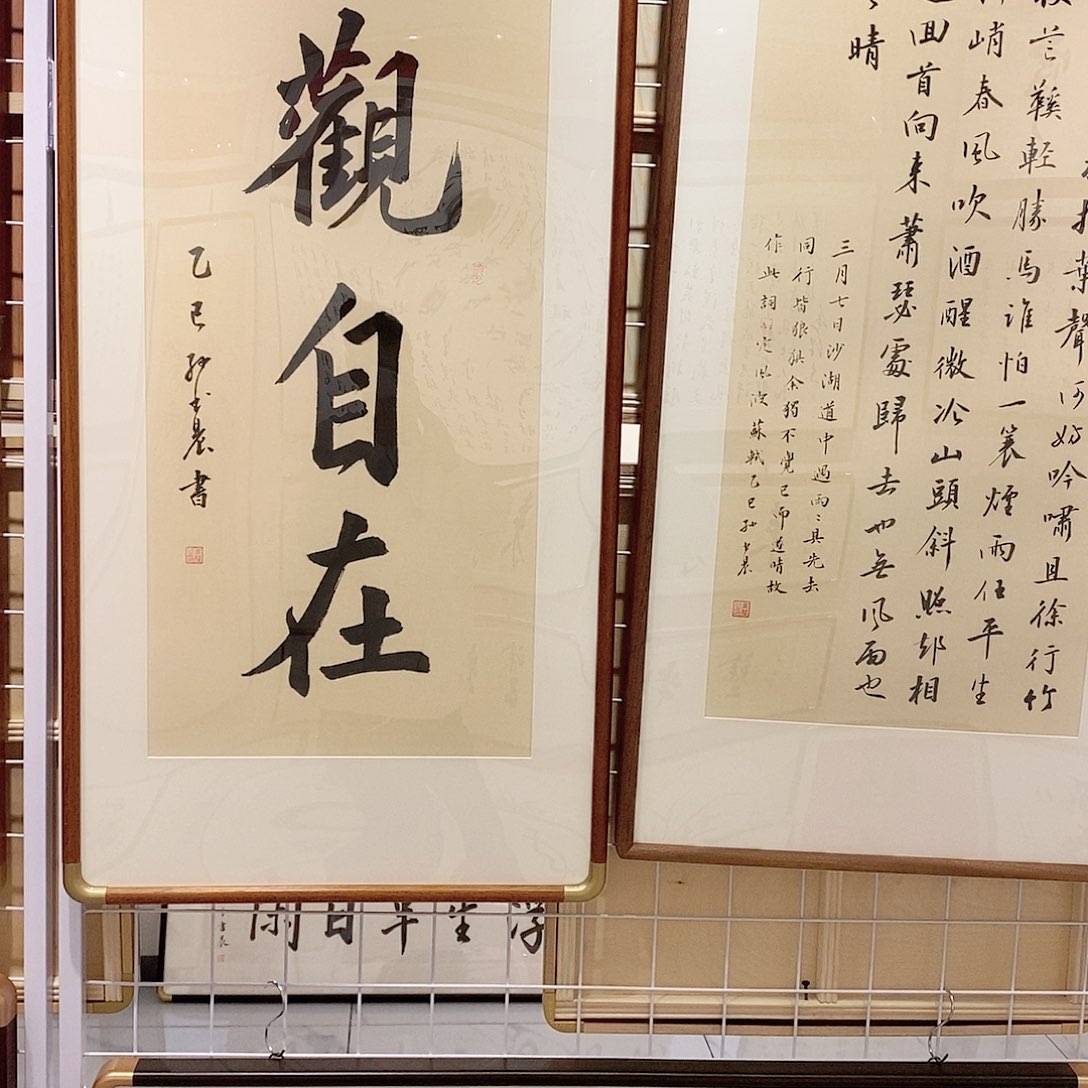 觀自在
乙巳 孙 書
打葉聲何妨吟嘯且徐行竹
杖芒鞵輕勝馬誰怕一蓑煙雨任平生
料峭春风吹酒醒微冷山頭斜照却相
迎囬首向来蕭瑟處歸去也無风雨也
無晴
三月七日沙湖道中遇雨〻具先去
同行皆狼狽余獨不覺已而遂晴故
作此詞 定风波 蘇軾 乙巳 孙
浮生半日閑